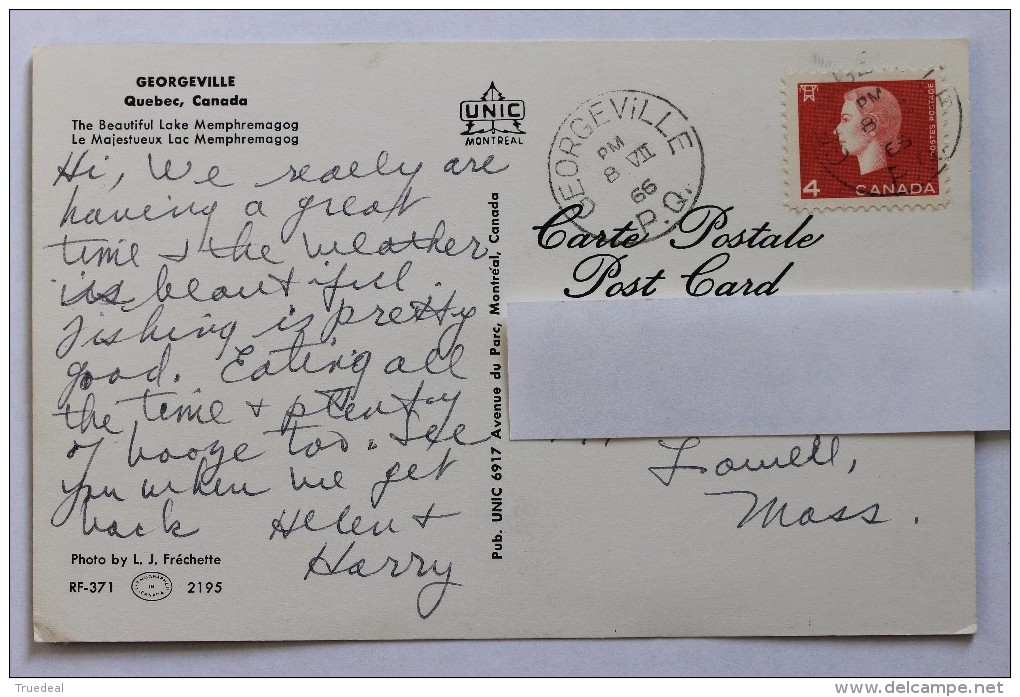 GEORGEVILLE
Quebec, Canada
The Beautiful Lake Memphremagog
Le Majestueux Lac Memphremagog
Hi, We really are
having a great
time & the weather
is beautiful.
Fishing is pretty
good. Eating all
the time & plenty
of booze too. See
you when we get
back Helen &
Harry
Photo by L. J. Fréchette
RF-371 LITHOGRAPHED IN CANADA 2195
UNIC
MONTREAL
Pub. UNIC 6917 Avenue du Parc, Montréal, Canada
GEORGEVILLE
PM
8 VII
66
P.Q.
4 CANADA
POSTES POSTAGE
PM
8
Carte Postale
Post Card
Lowell,
Mass.
Truedeal
www.delcampe.net